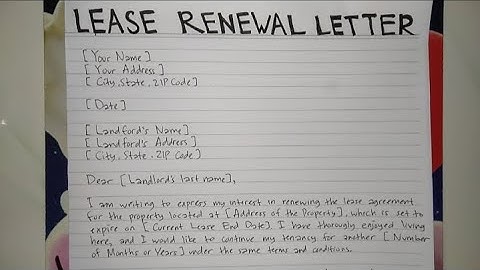 LEASE RENEWAL LETTER
[Your Name]
[Your Address]
[City, State, ZIP Code]
[Date]
[Landford's Name]
[Landford's Address]
[City, State, ZIP Code]
Dear [Landlord's last name],
I am writing to express my interest in renewing the lease agreement
for the property located at [Address of the Property], which is set to
expire on [Current Lease End Date]. I have thorougly enjoyed living
here, and I would like to continue my tenancy for another [Number
of Months or Years] under the same terms and conditions.